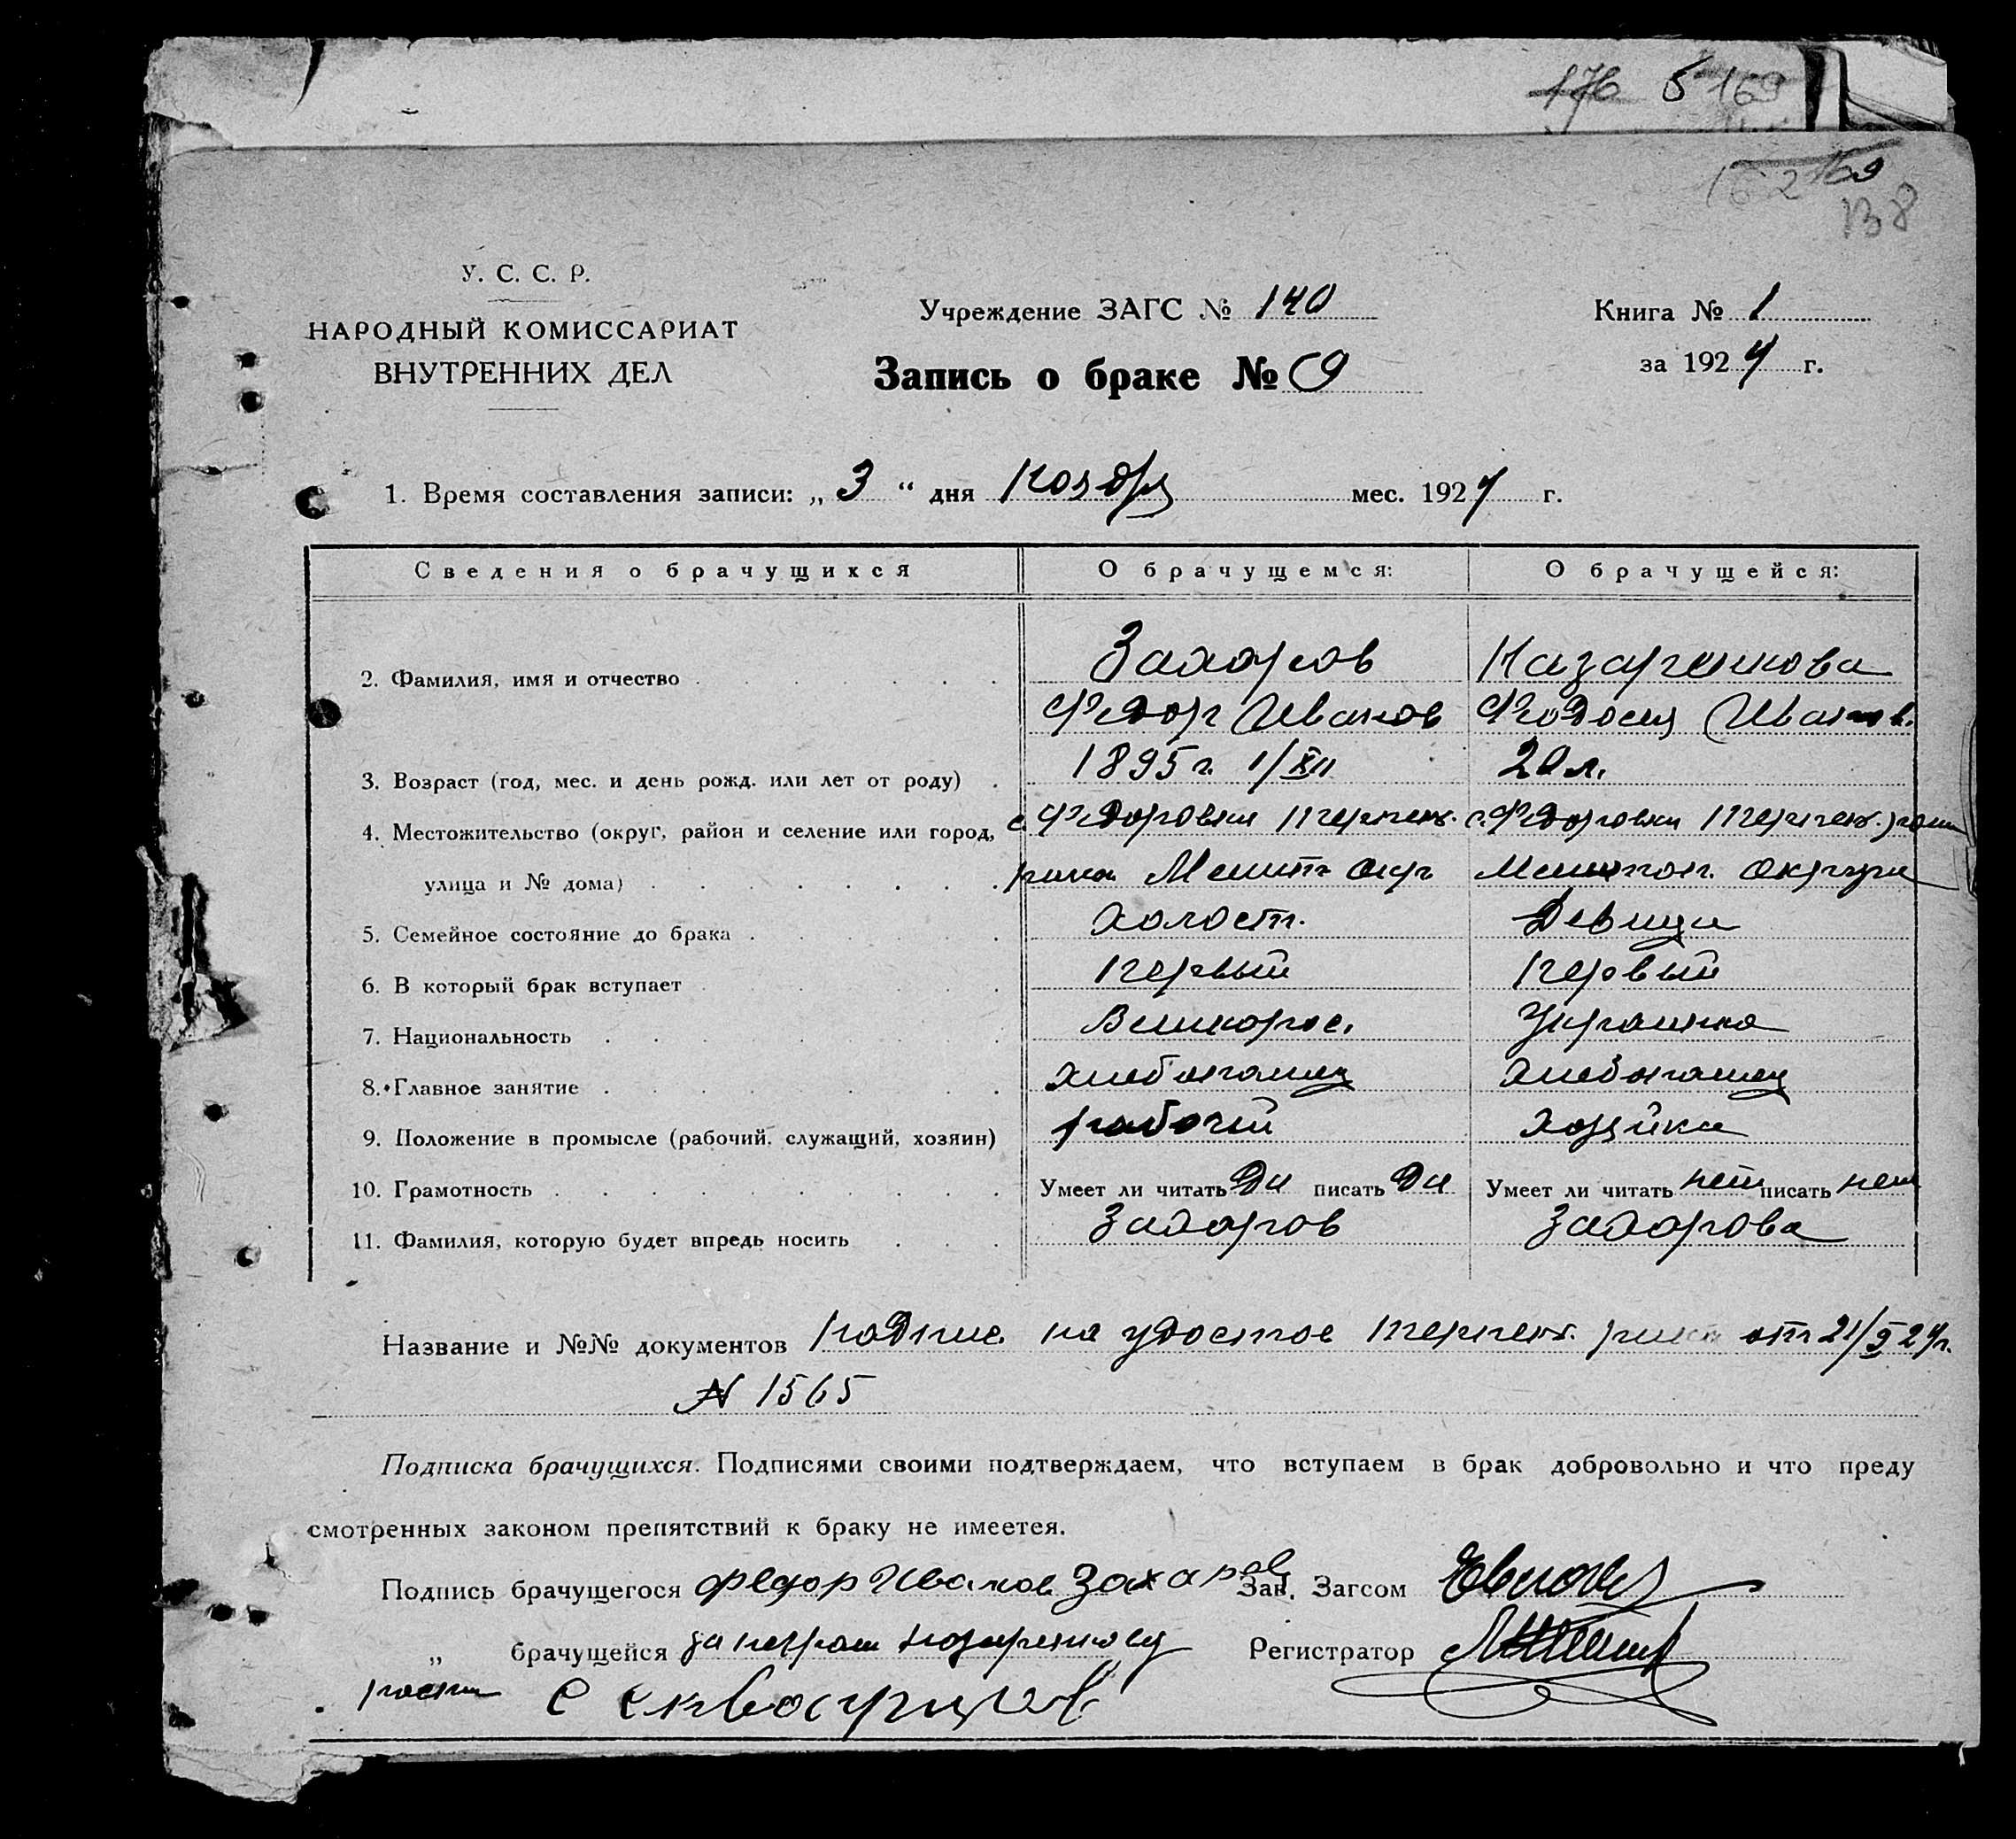 176 5 169
162 169
138
У. С. С. Р.
НАРОДНЫЙ КОМИССАРИАТ
ВНУТРЕННИХ ДЕЛ
Учреждение ЗАГС № 140
Запись о браке № 9
Книга № 1
за 1924 г.
1. Время составления записи: „ 3 “ дня ноября мес. 1924 г.
Сведения о брачущихся О брачущемся: О брачущейся:
2. Фамилия, имя и отчество Захаров Назаренкова
Федор Иванов Феодосия Иванов.
3. Возраст (год, мес. и день рожд. или лет от роду) 1895 г. 1/XII 20 л.
4. Местожительство (округ, район и селение или город, с. Федоровки с. Федоровки
улица и № дома) района Мелит. окр Мелитоп. округа
5. Семейное состояние до брака холост. Девица
6. В который брак вступает первый первый
7. Национальность Великорос. Украинка
8. Главное занятие хлебопашец хлебопашец
9. Положение в промысле (рабочий, служащий, хозяин) рабочий хозяйка
10. Грамотность Умеет ли читать Да писать Да Умеет ли читать нет писать нет
11. Фамилия, которую будет впредь носить Захаров Захарова
Название и №№ документов на удостов от 21/X 24 г.
N 1565
Подписка брачущихся. Подписями своими подтверждаем, что вступаем в брак добровольно и что преду
смотренных законом препятствий к браку не имеется.
Подпись брачущегося Федор Иванов Захаров Зав. Загсом
„ брачущейся за неграм Назаренкову Регистратор